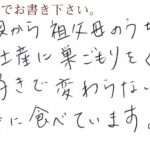 でお書き下さい。
から祖父母のうち
土産に巣ごもりをく
好きで変わらない
に食べています。